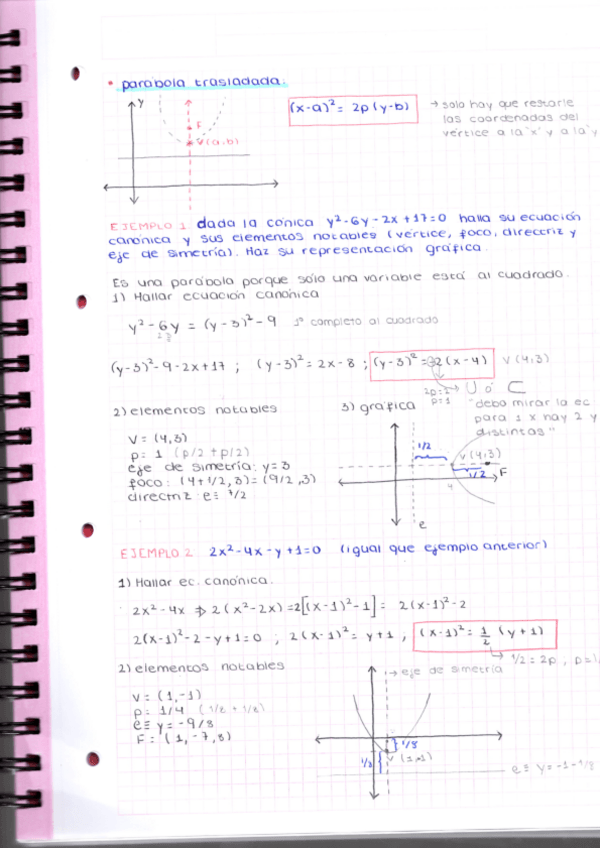 • parábola trasladada:
y
F
V(a,b)
(x-a)² = 2p(y-b)
→ solo hay que restarle
las coordenadas del
vértice a la 'x' y a la 'y
EJEMPLO 1. dada la cónica y²-6y-2x+17=0 halla su ecuación
canónica y sus elementos notables (vértice, foco, directriz y
eje de simetría). Haz su representación gráfica.
Es una parábola porque sólo una variable está al cuadrado.
1) Hallar ecuación canónica
y²-6y = (y-3)²-9 1º completo al cuadrado
(y-3)²-9-2x+17 ; (y-3)² = 2x-8 ; (y-3)² = 2(x-4) V(4,3)
2p=2
p=1
U ó ⊂
"debo mirar la ec
para 1 x hay 2 y
distintas"
2) elementos notables
V = (4,3)
p= 1 (p/2 + p/2)
eje de simetría: y=3
foco: (4+1/2,3)=(9/2,3)
directriz: e≡ 7/2
3) gráfica
1/2
V(4,3)
F
1/2
4
e
EJEMPLO 2. 2x²-4x-y+1=0 (igual que ejemplo anterior)
1) Hallar ec. canónica.
2x²-4x ⇒ 2(x²-2x) = 2[(x-1)²-1] = 2(x-1)²-2
2(x-1)²-2-y+1=0 ; 2(x-1)² = y+1 , (x-1)² = 1/2 (y+1)
→ 1/2 = 2p , p=1/
2) elementos notables
V = (1,-1)
p = 1/4 (1/8 + 1/8)
e≡ y=-9/8
F = (1,-7,8)
→ eje de simetría
1/8
1/8
e≡ y=-1-1/8